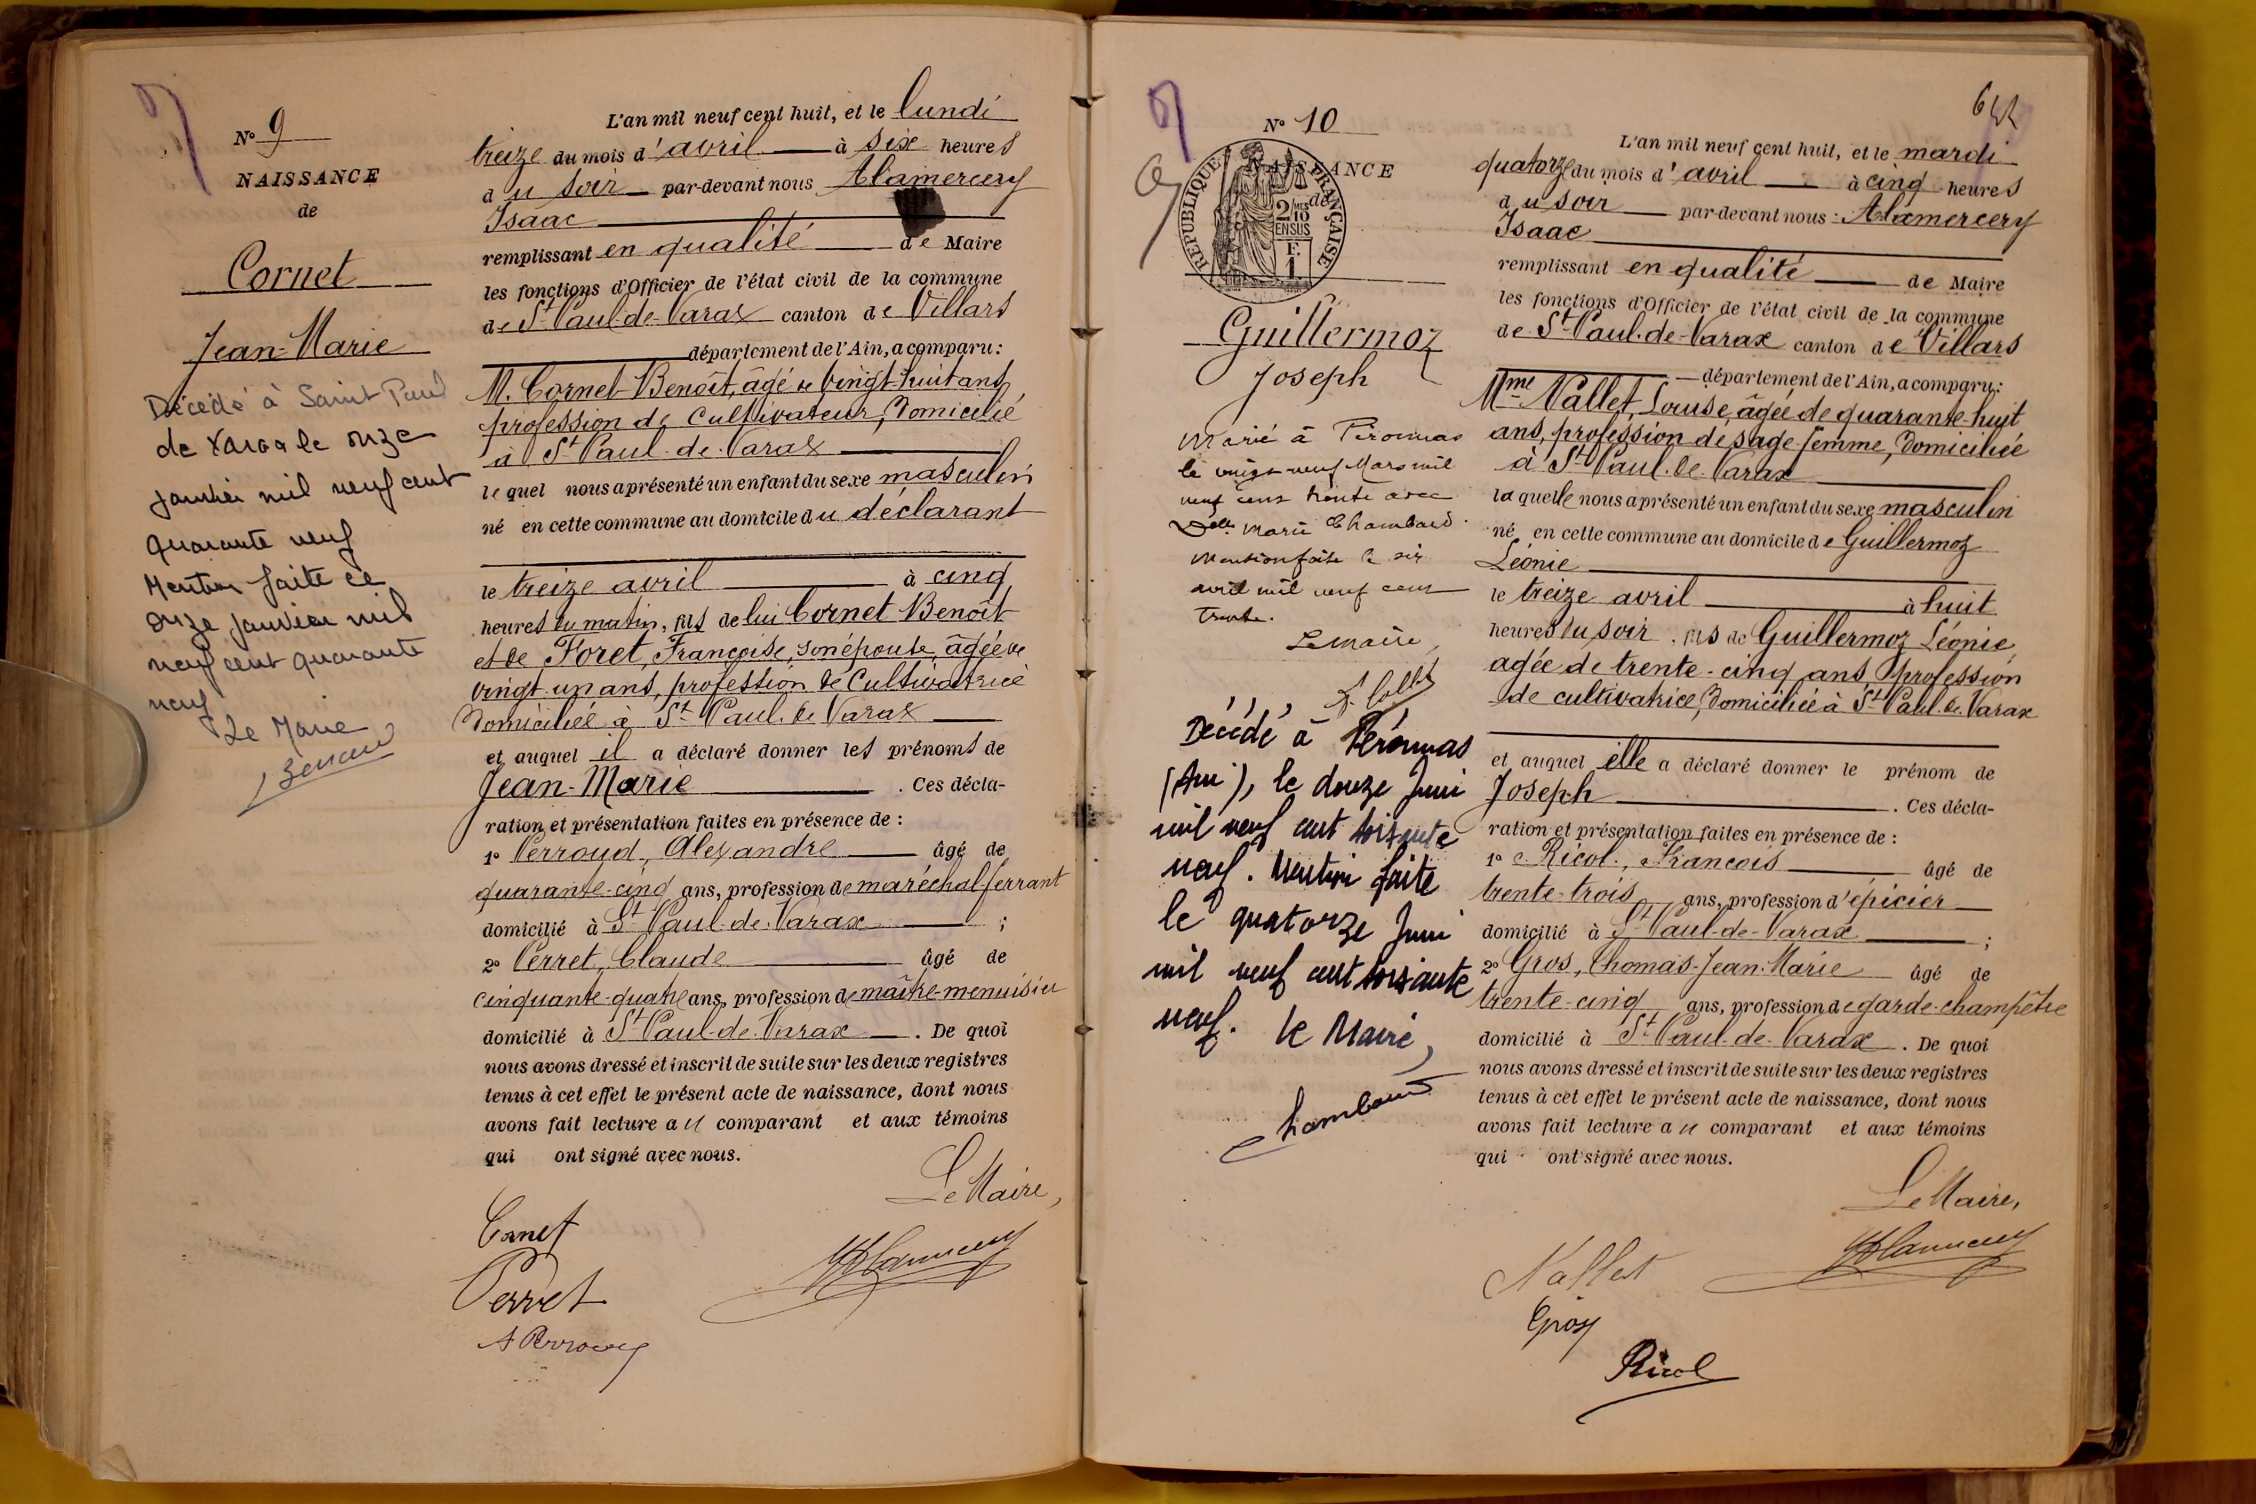 N° 9
NAISSANCE
de
Cornet
Jean-Marie
Décédé à Saint Paul
de Varax le onze
janvier mil neuf cent
quarante neuf
Mention faite ce
onze janvier mil
neuf cent quarante
neuf
Le Maire
L'an mil neuf cent huit, et le lundi
treize du mois d'avril à six heures
du soir par-devant nous Alamercery
Isaac
remplissant en qualité de Maire
les fonctions d'Officier de l'état civil de la commune
de St Paul-de-Varax canton de Villars
département de l'Ain, a comparu:
M. Cornet Benoît, âgé de vingt-huit ans,
profession de cultivateur, domicilié
à St Paul-de-Varax
lequel nous a présenté un enfant du sexe masculin
né en cette commune au domicile du déclarant
le treize avril à cinq
heures du matin, fils de lui Cornet Benoît
et de Foret, Françoise, son épouse, âgée de
vingt-un ans, profession de Cultivatrice
domiciliée à St Paul-de-Varax
et auquel il a déclaré donner les prénoms de
Jean-Marie . Ces décla-
ration et présentation faites en présence de :
1° Perroud, Alexandre âgé de
quarante-cinq ans, profession de maréchal-ferrant
domicilié à St Paul-de-Varax ;
2° Perret, Claude âgé de
cinquante-quatre ans, profession de maître-menuisier
domicilié à St Paul-de-Varax . De quoi
nous avons dressé et inscrit de suite sur les deux registres
tenus à cet effet le présent acte de naissance, dont nous
avons fait lecture au comparant et aux témoins
qui ont signé avec nous.
Le Maire,
Cornet
Perret
A Perroud
N° 10
NAISSANCE
de
RÉPUBLIQUE FRANÇAISE
2/10 EN SUS
F.
1.
Guillermoz
Joseph
Marié à Péronnas
le vingt-neuf Mars mil
neuf cent trente avec
Delle Marie Chambard.
Mention faite le six
avril mil neuf cent
trente.
Le Maire,
Décédé à Péronnas
(Ain), le douze Juin
mil neuf cent soixante
neuf. Mention faite
le quatorze Juin
mil neuf cent soixante
neuf. Le Maire,
L'an mil neuf cent huit, et le mardi
quatorze du mois d'avril à cinq heures
du soir par-devant nous : Alamercery
Isaac
remplissant en qualité de Maire
les fonctions d'Officier de l'état civil de la commune
de St Paul-de-Varax canton de Villars
département de l'Ain, a comparu:
Mme Nallet, Louise, âgée de quarante-huit
ans, profession de sage-femme, domiciliée
à St Paul-de-Varax
laquelle nous a présenté un enfant du sexe masculin
né en cette commune au domicile de Guillermoz
Léonie
le treize avril à huit
heures du soir, fils de Guillermoz Léonie,
agée de trente-cinq ans profession
de cultivatrice, domiciliée à St Paul-de-Varax
et auquel elle a déclaré donner le prénom de
Joseph . Ces décla-
ration et présentation faites en présence de :
1° Ricol, François âgé de
trente-trois ans, profession d'épicier
domicilié à St Paul-de-Varax ;
2° Gros, Thomas-Jean-Marie âgé de
trente-cinq ans, profession de garde-champêtre
domicilié à St Paul-de-Varax . De quoi
nous avons dressé et inscrit de suite sur les deux registres
tenus à cet effet le présent acte de naissance, dont nous
avons fait lecture au comparant et aux témoins
qui ont signé avec nous.
Le Maire,
Nallet
Gros
Ricol